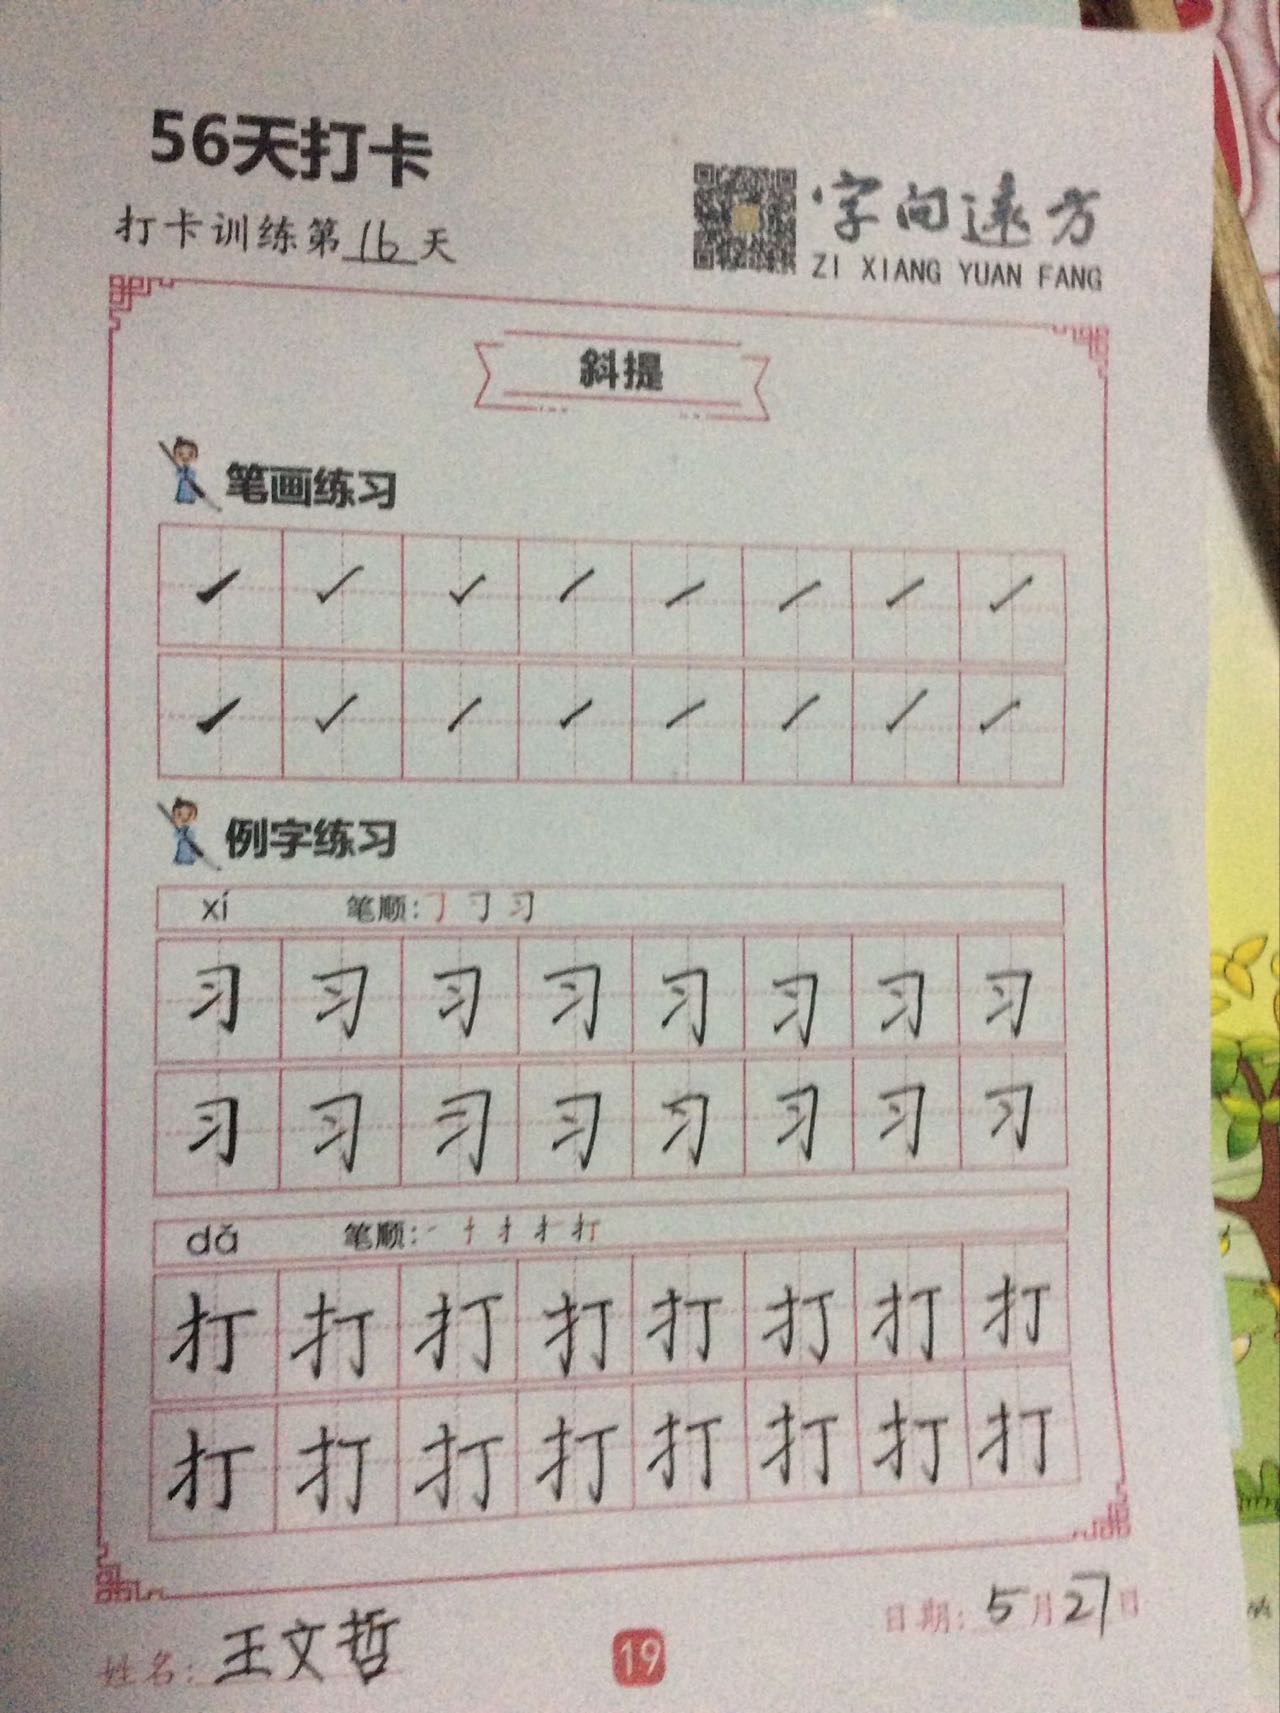 56天打卡
打卡训练第16天
字向远方
ZI XIANG YUAN FANG
斜提
笔画练习
例字练习
xí 笔顺:
习 习 习 习 习 习 习 习
习 习 习 习 习 习 习 习
dǎ 笔顺:
打 打 打 打 打 打 打 打
打 打 打 打 打 打 打 打
姓名:王文哲
19
日期:5月27日